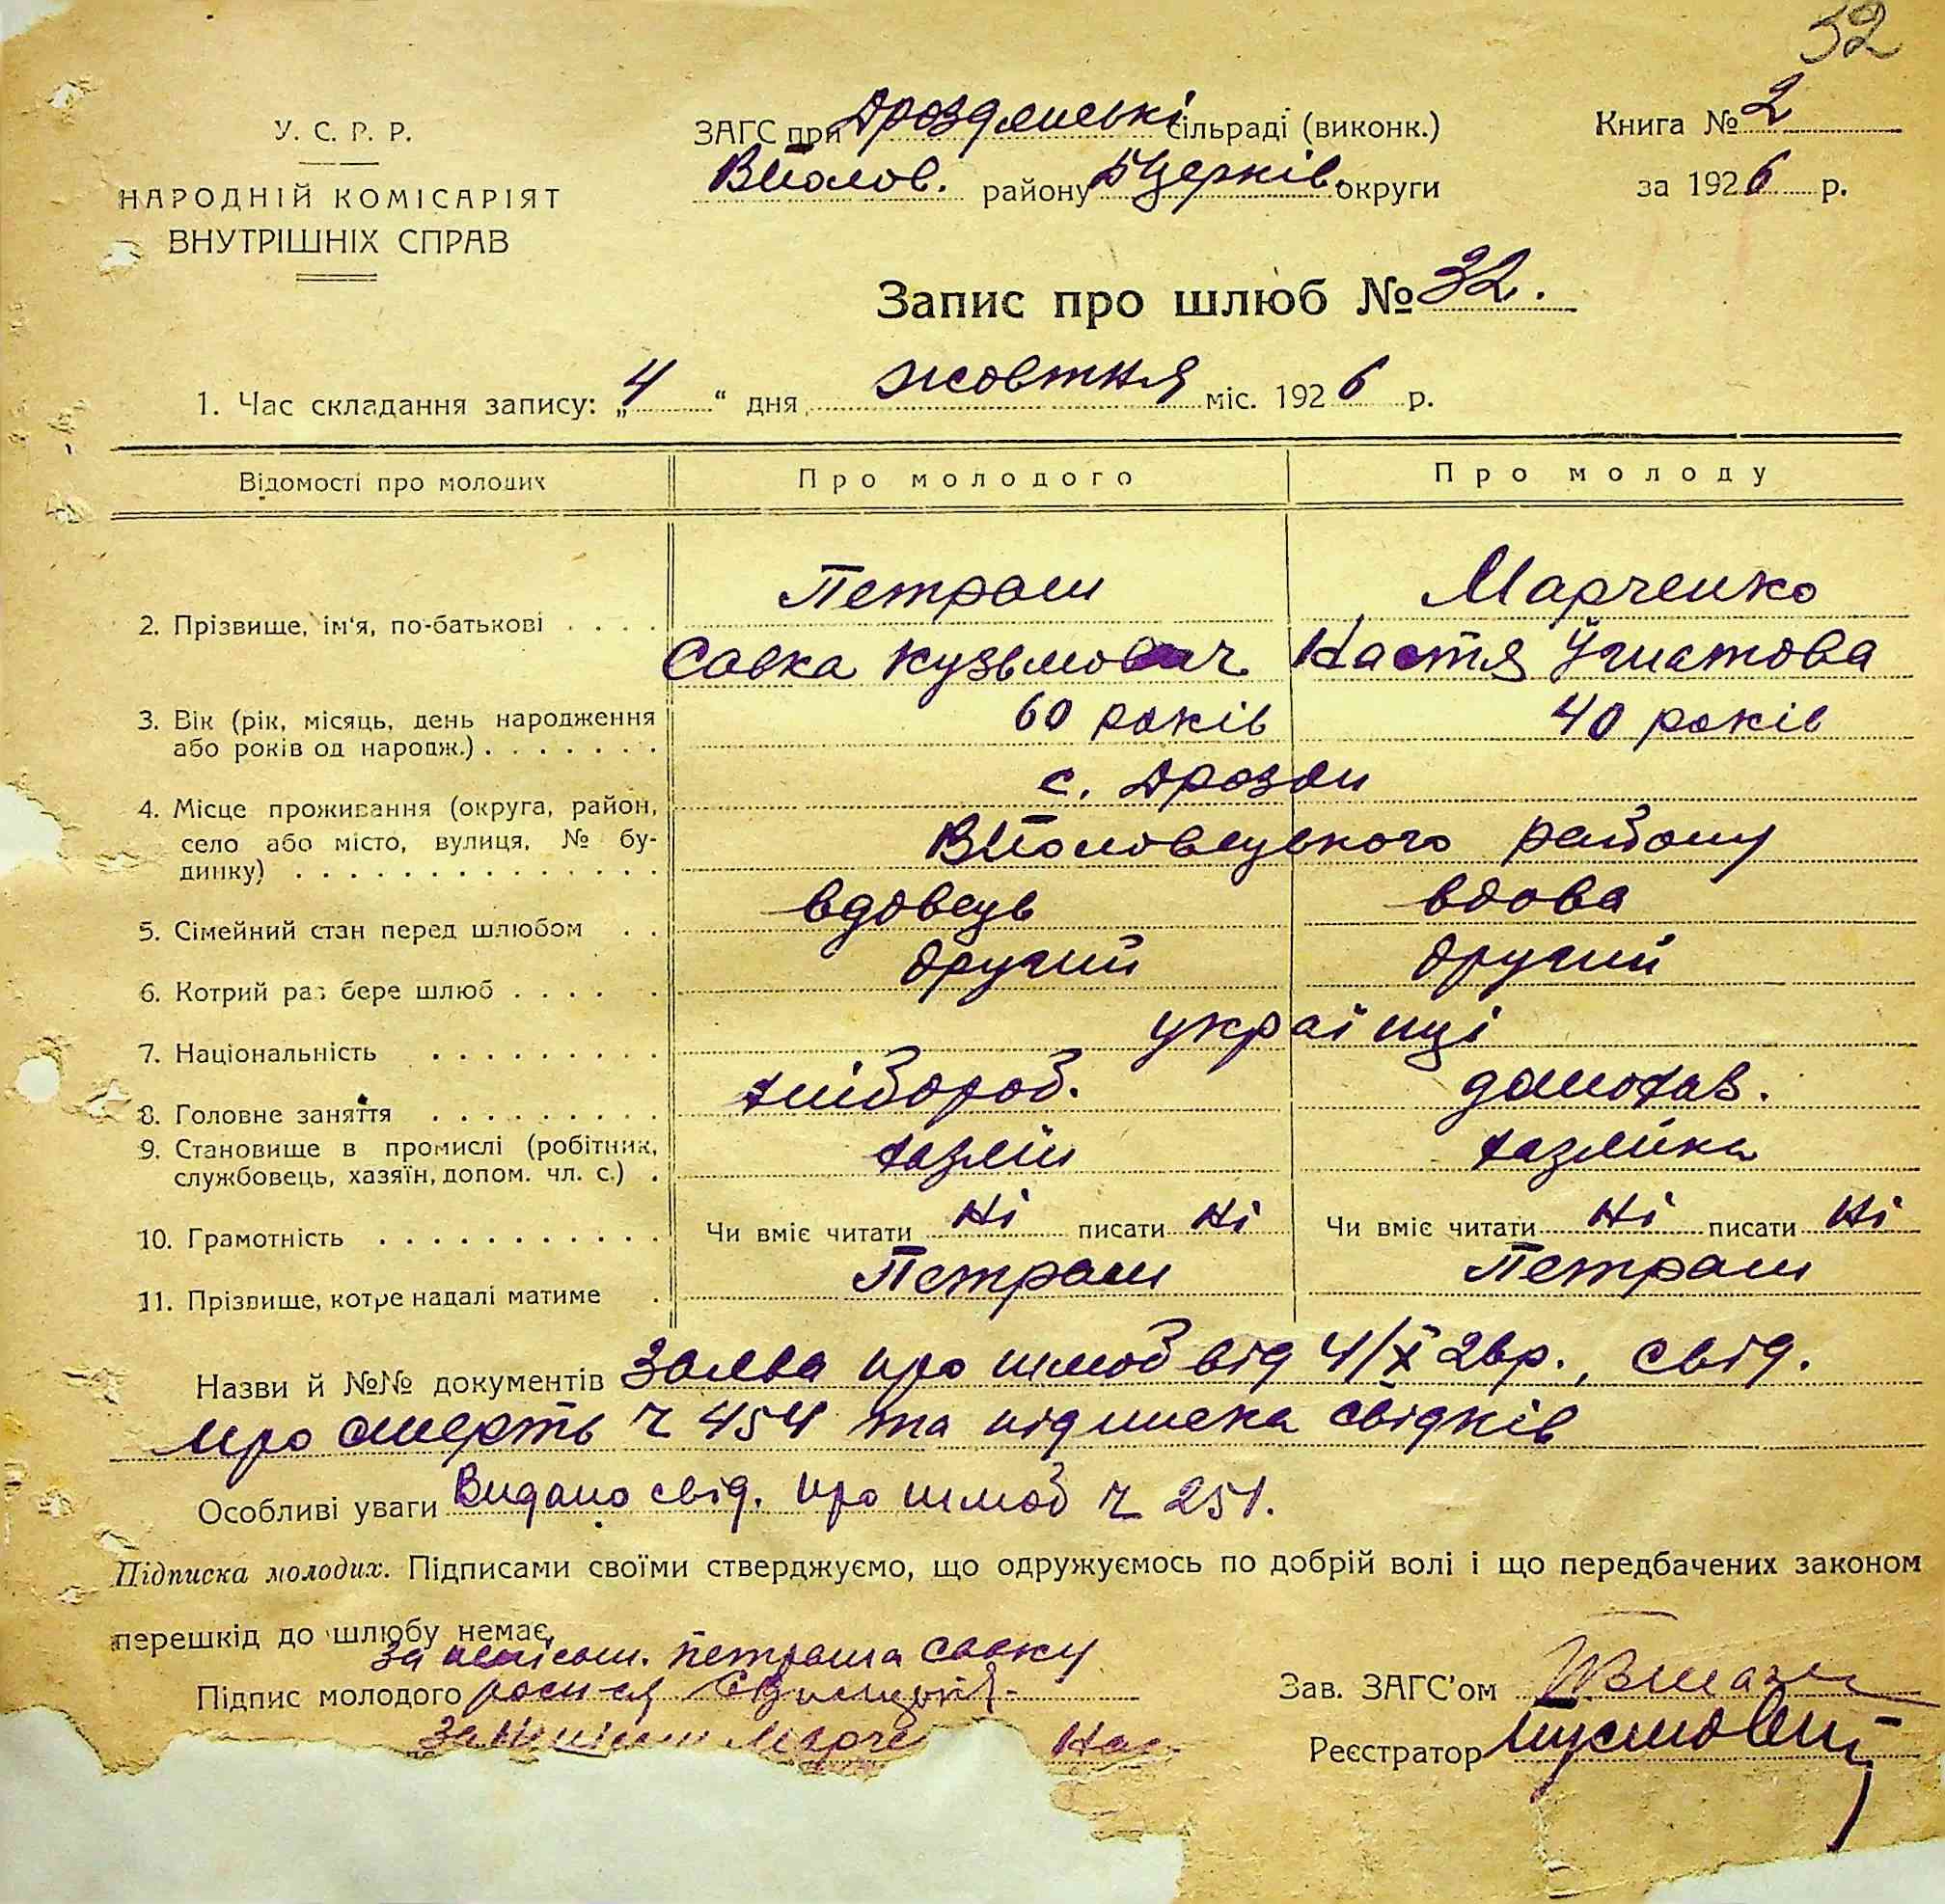 32
У. С. Р. Р.
НАРОДНІЙ КОМІСАРІЯТ
ВНУТРІШНІХ СПРАВ
ЗАГС при Дроздянські сільраді (виконк.)
ВПолов. району БЦерків. округи
Книга № 2
за 1926 р.
Запис про шлюб № 32.
1. Час складання запису: „4“ дня жовтня міс. 1926 р.
Відомості про молодих Про молодого Про молоду
Петраш Марченко
2. Прізвище, ім'я, по-батькові . . . . Савка Кузьмович Настя Ігнатова
3. Вік (рік, місяць, день народження 60 років 40 років
або років од народж.) . . . . . . .
с. Дрозди
4. Місце проживання (округа, район,
село або місто, вулиця, № бу- ВПоловецького району
динку) . . . . . . . . . . . . . .
5. Сімейний стан перед шлюбом . . вдовець вдова
6. Котрий раз бере шлюб . . . . . другий другий
7. Національність . . . . . . . . . українці
8. Головне заняття . . . . . . . . . хлібороб. домохаз.
9. Становище в промислі (робітник, хазяїн хазяйка
службовець, хазяїн, допом. чл. с.) .
10. Грамотність . . . . . . . . . . . Чи вміє читати Ні писати Ні Чи вміє читати Ні писати Ні
11. Прізвище, котре надалі матиме . Петраш Петраш
Назви й №№ документів Заява про шлюб від 4/X 26р., свід.
про смерть ч 454 та підписка свідків
Особливі уваги Видано свід. про шлюб ч 251.
Підписка молодих. Підписами своїми стверджуємо, що одружуємось по добрій волі і що передбачених законом
перешкід до шлюбу немає.
за неписьм. Петраша Савку
Підпис молодого
Зав. ЗАГС'ом
Реєстратор